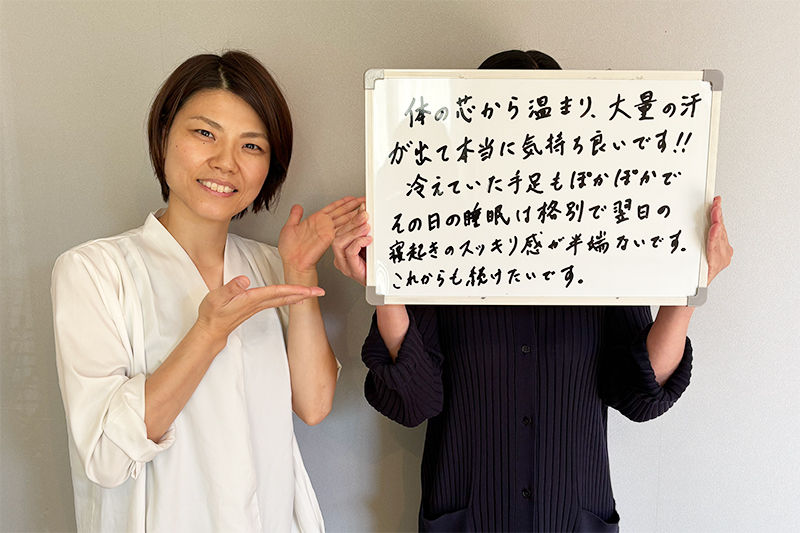 体の芯から温まり、大量の汗
が出て本当に気持ち良いです!!
冷えていた手足もぽかぽかで
その日の睡眠は格別で翌日の
寝起きのスッキリ感が半端ないです。
これからも続けたいです。